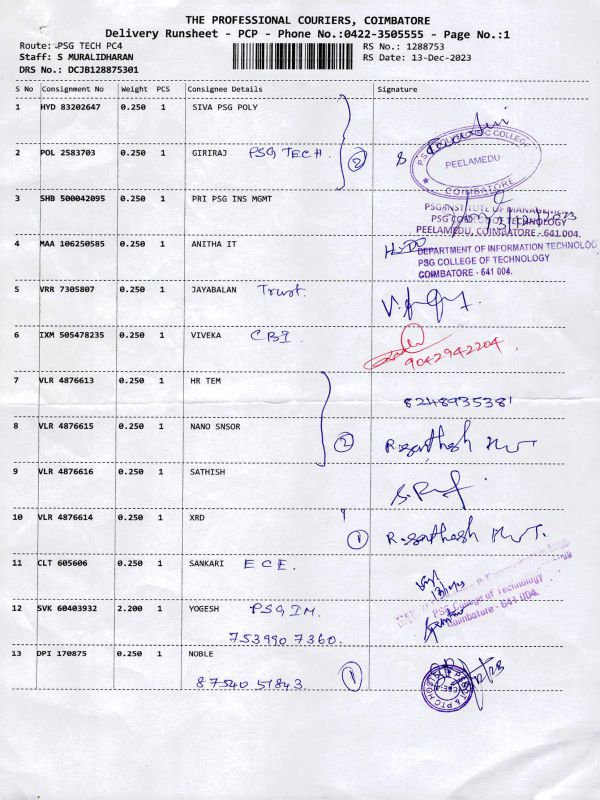 THE PROFESSIONAL COURIERS, COIMBATORE
Delivery Runsheet - PCP - Phone No.:0422-3505555 - Page No.:1
Route: PSG TECH PC4 RS No.: 1288753
Staff: S MURALIDHARAN RS Date: 13-Dec-2023
DRS No.: DCJB128875301
S No Consignment No Weight PCS Consignee Details Signature
1 HYD 83202647 0.250 1 SIVA PSG POLY
2 POL 2583703 0.250 1 GIRIRAJ PSG TECH. 2
COLLEGE
PEELAMEDU
COIMBATORE
3 SHB 500042095 0.250 1 PRI PSG INS MGMT
PSG INSTITUTE OF MANAGEMENT
PSG COLLEGE OF TECHNOLOGY
PEELAMEDU, COIMBATORE - 641 004.
4 MAA 106250585 0.250 1 ANITHA IT
DEPARTMENT OF INFORMATION TECHNOLOG
PSG COLLEGE OF TECHNOLOGY
COIMBATORE - 641 004.
5 VRR 7305807 0.250 1 JAYABALAN Trust.
6 IXM 505478235 0.250 1 VIVEKA CBI
9042942204
7 VLR 4876613 0.250 1 HR TEM
8248935381
8 VLR 4876615 0.250 1 NANO SNSOR 2
9 VLR 4876616 0.250 1 SATHISH
10 VLR 4876614 0.250 1 XRD 1
11 CLT 605606 0.250 1 SANKARI ECE.
PSG College of Technology
Coimbatore - 641 004.
12 SVK 60403932 2.200 1 YOGESH PSG IM.
753990 7360.
13 DPI 170875 0.250 1 NOBLE 1
87540 51843